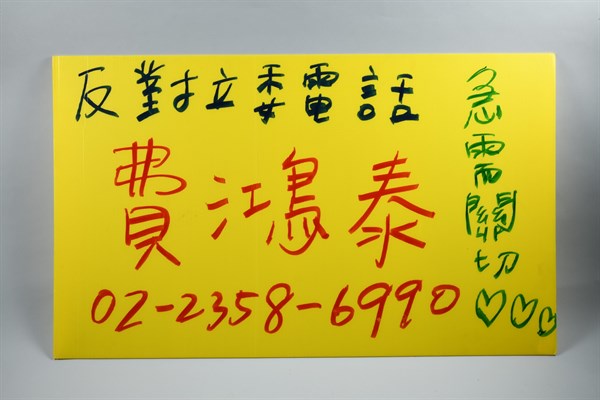 反對立委電話
費鴻泰
02-2358-6990
急需關切♡♡♡